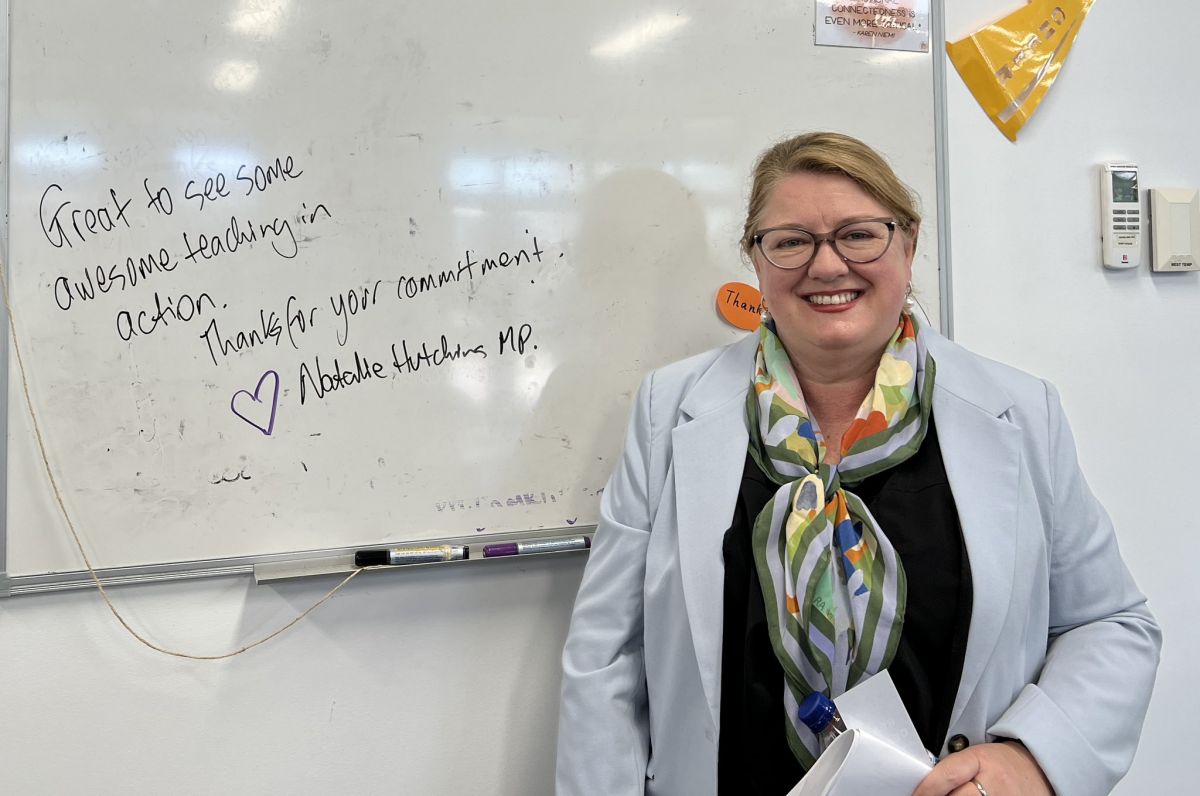 Great to see some
awesome teaching in
action.
Thanks for your commitment.
Natalie Hutchins MP.
CONNECTEDNESS IS
EVEN MORE CRITICAL"
- KAREN NIEMI
Thank
WEST TEMP